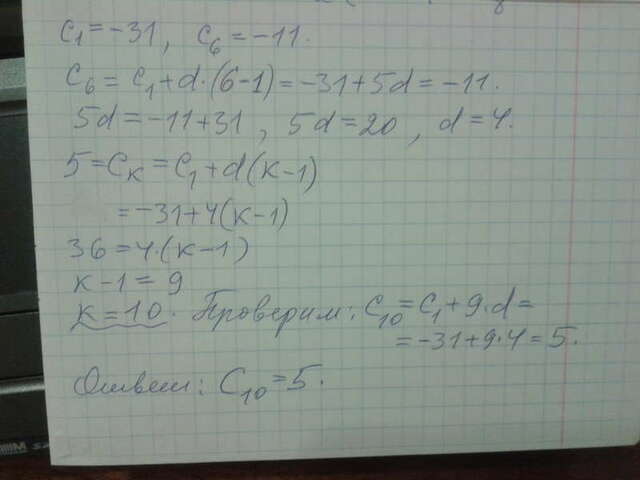 c₁ = -31, c₆ = -11.
c₆ = c₁ + d·(6-1) = -31 + 5d = -11.
5d = -11 + 31, 5d = 20, d = 4.
5 = cₖ = c₁ + d(к-1)
= -31 + 4(к-1)
36 = 4·(к-1)
к-1 = 9
к = 10. Проверим: c₁₀ = c₁ + 9·d =
= -31 + 9·4 = 5.
Ответ: c₁₀ = 5.